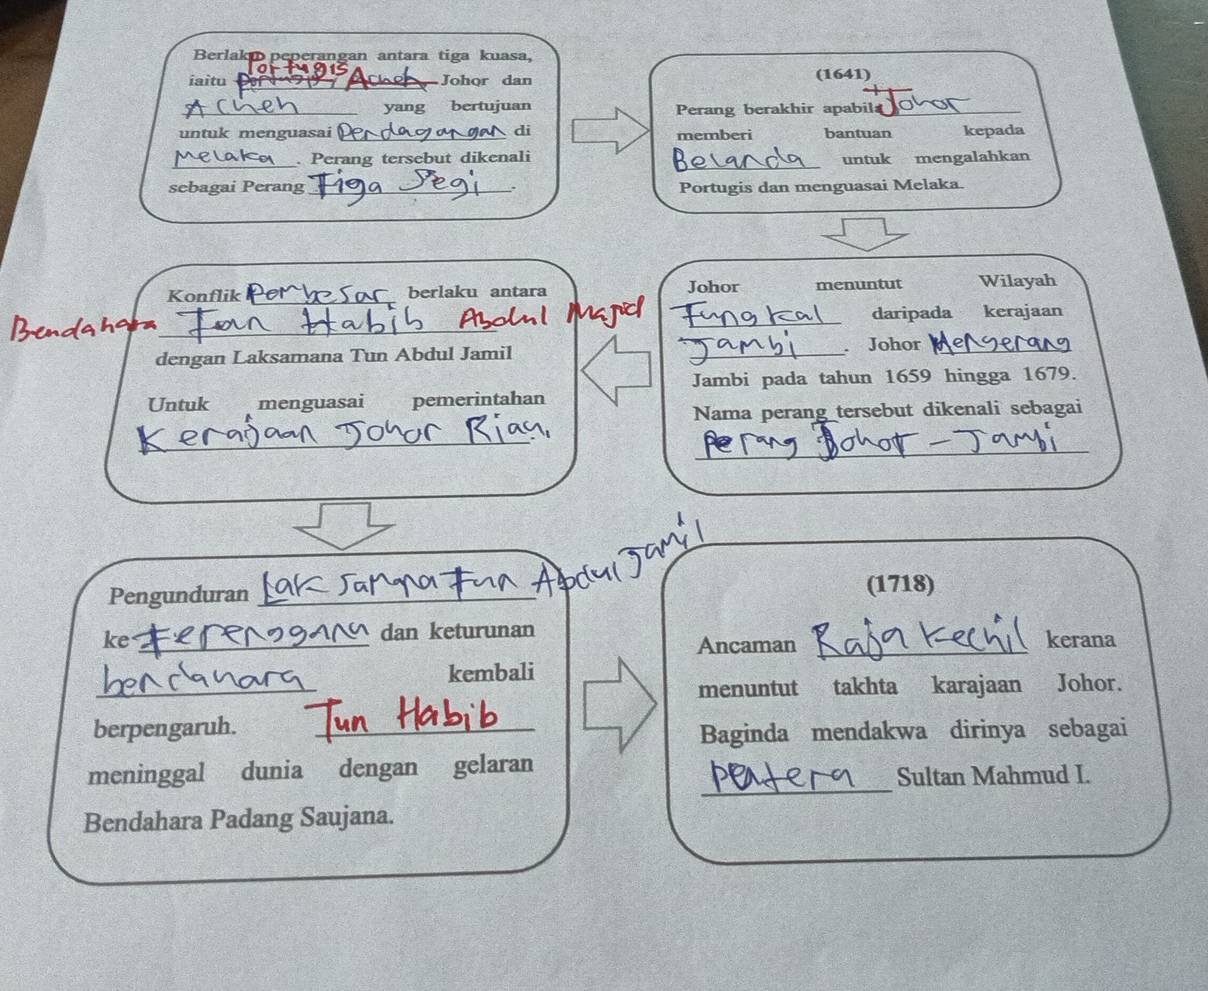 Berlaku peperangan antara tiga kuasa,
Portugis
iaitu Acheh Johor dan
Acheh yang bertujuan
untuk menguasai Perdagangan di
Melaka. Perang tersebut dikenali
sebagai Perang Tiga Segi.
(1641)
Perang berakhir apabila Johor
memberi bantuan kepada
Belanda untuk mengalahkan
Portugis dan menguasai Melaka.
Johor menuntut Wilayah
Tungkal daripada kerajaan
Jambi. Johor Menyerang
Jambi pada tahun 1659 hingga 1679.
Nama perang tersebut dikenali sebagai
Perang Johor - Jambi
Konflik Pembesar berlaku antara
Bendahara Tun Habib Abdul Majid
dengan Laksamana Tun Abdul Jamil
Untuk menguasai pemerintahan
Kerajaan Johor Riau.
Pengunduran Laksamana Tun Abdul Jamil
ke Terengganu dan keturunan
bendahara kembali
berpengaruh. Tun Habib
meninggal dunia dengan gelaran
Bendahara Padang Saujana.
(1718)
Ancaman Raja Kechil kerana
menuntut takhta karajaan Johor.
Baginda mendakwa dirinya sebagai
peutera Sultan Mahmud I.